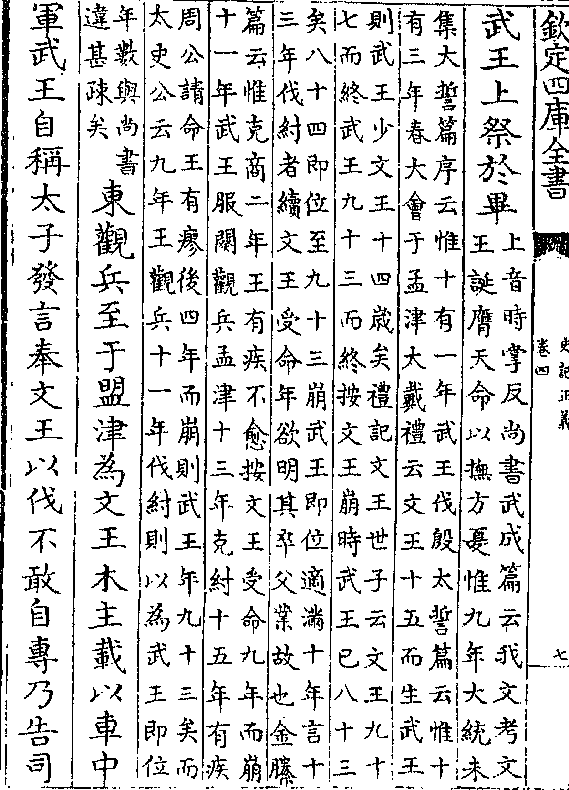 欽定四庫全書
史記正義
卷四
七
武王上祭於畢
上音時掌反尚書武成篇云我文考文
王誕膺天命以撫方夏惟九年大統未
集大誓篇序云惟十有一年武王伐殷太誓篇云惟十
有三年春大會于孟津太戴禮云文王十五而生武王
則武王少文王十四歲矣禮記文王世子云文王九十
七而終武王九十三而終按文王崩時武王已八十三
矣八十四即位至九十三崩武王即位適滿十年言十
三年伐紂者續文王受命年欲明其卒父業故也金縢
篇云惟克商二年王有疾不愈按文王受命九年而崩
十一年武王服闋觀兵孟津十三年克紂十五年有疾
周公請命王有瘳後四年而崩則武王年九十三矣而
太史公云九年王觀兵十一年伐紂則以為武王即位
年數與尚書
違甚疎矣
東觀兵至于盟津為文王木主載以車中
軍武王自稱太子發言奉文王以伐不敢自專乃告司